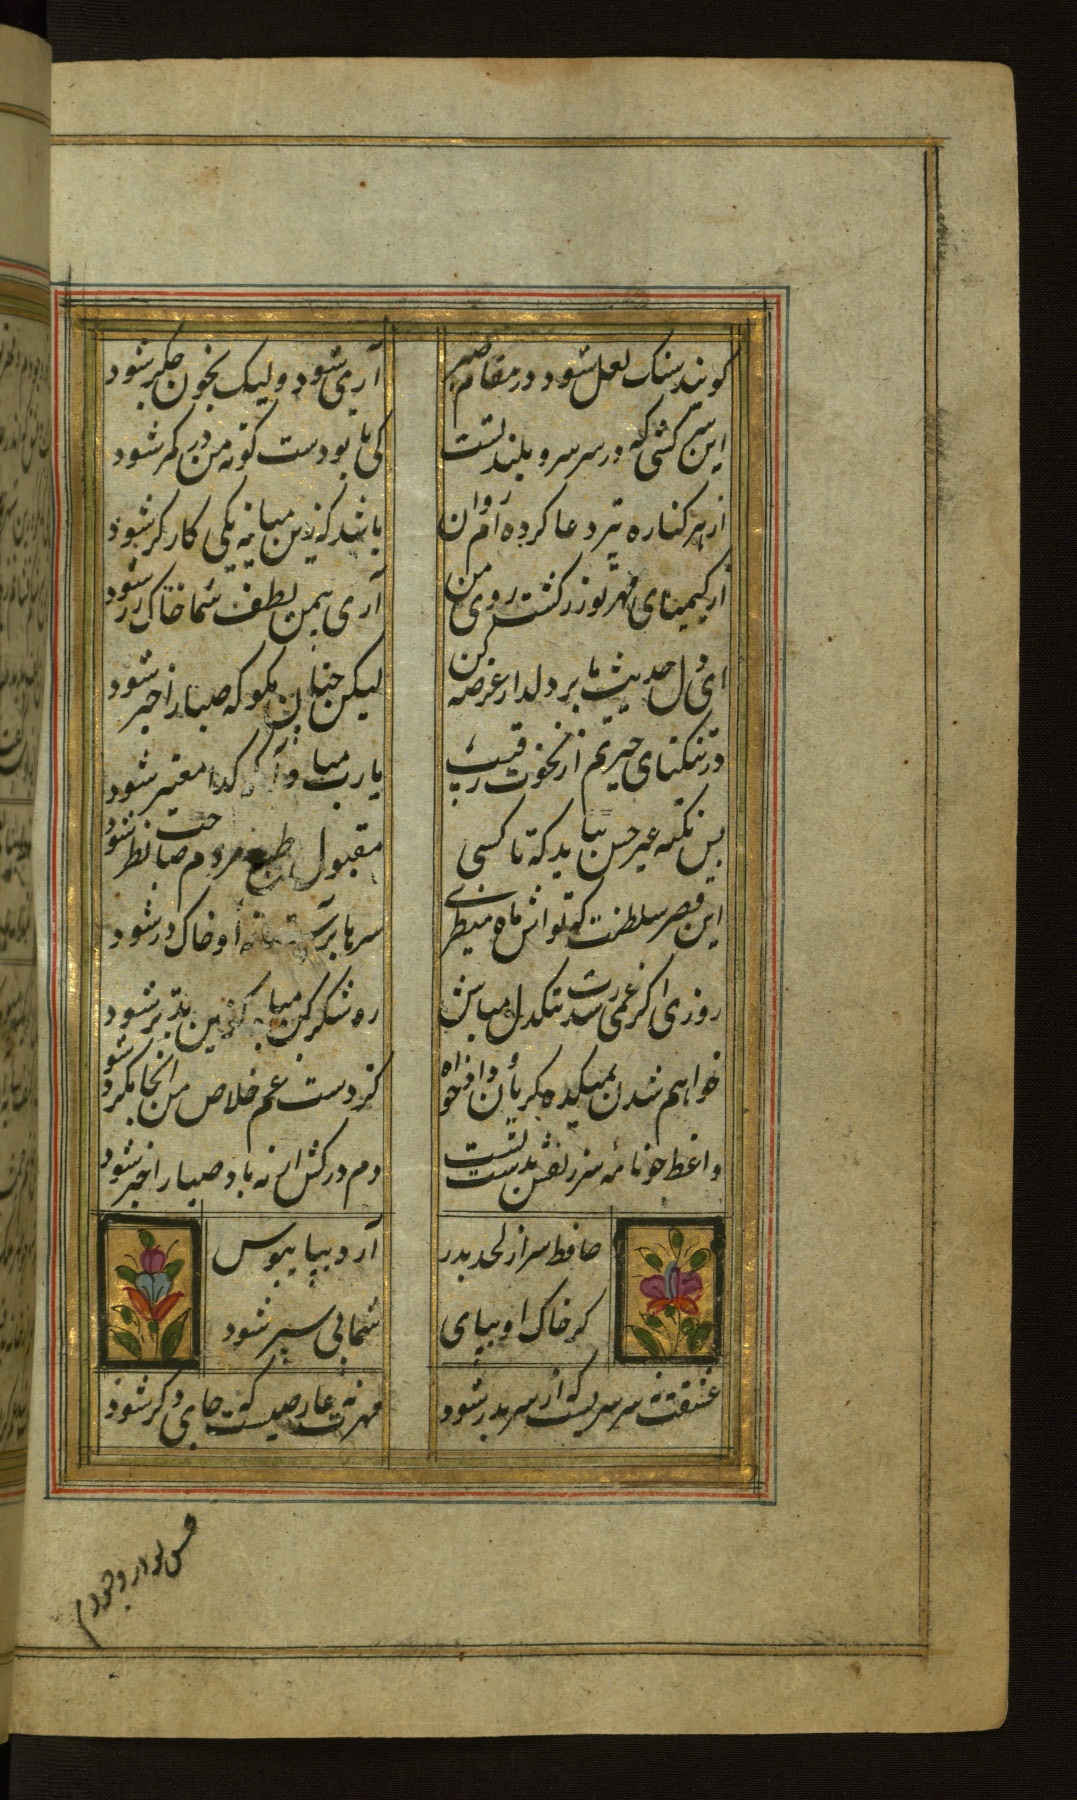 کویند سنک لعل شود در مقام صبر
آری شود ولیک بخون جکر شود
این سر کشی که در سر سرو بلند تست
کی با تو دست کوته من در کمر شود
از هر کناره تیر دعا کرده ام روان
باشد کزین میانه یکی کارکر شود
از کیمیای مهر تو زر کشت روی من
آری بیمن لطف شما خاک زر شود
ای دل حدیث ما بر دلدار عرضه کن
لیکن چنان مکو که صبا را خبر شود
در تنکنای حیرتم از نخوت رقیب
یارب مباد آنکه کدا معتبر شود
بس نکته غیر حسن بباید که تا کسی
مقبول طبع مردم صاحب نظر شود
این قصر سلطنت که تواش ماه منظری
سرها بر آستانه او خاک در شود
روزی اکر غمی رسدت تنکدل مباش
رو شکر کن مباد که از بد بتر شود
خواهم شدن بمیکده کریان و دادخواه
کز دست غم خلاص من آنجا مکر شود
حافظ چو نافه سر زلفش بدست تست
دم در کش ار نه باد صبا را خبر شود
حافظ سر از لحد بدر
آرد بپایبوس
کر خاک او بپای
شما پی سپر شود
عشقت نه سرسریست که از سر بدر شود
مهرت نه عارضیست که جای دکر شود